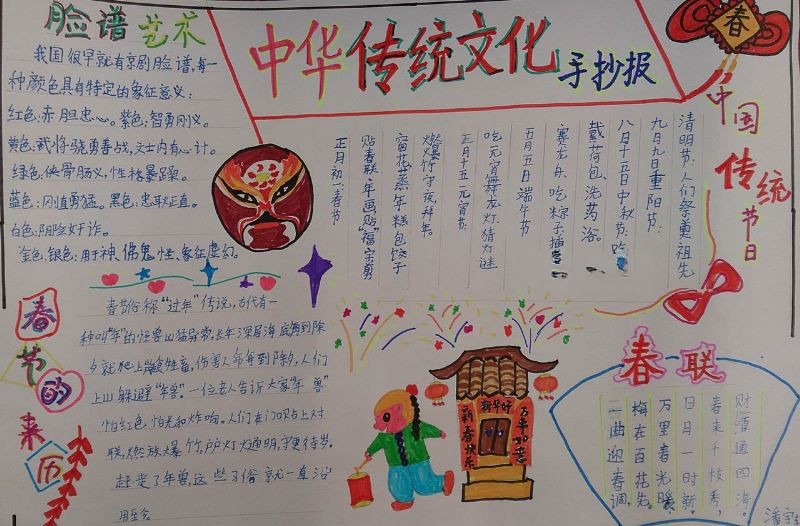 脸谱艺术
我国很早就有京剧脸谱,每一
种颜色具有特定的象征意义:
红色:赤胆忠心。紫色:智勇刚义。
黄色:武将骁勇善战,文士内有心计。
绿色:侠骨肠义,性格暴躁。
蓝色:刚直勇猛。黑色:忠耿正直。
白色:阴险奸诈。
金色,银色:用于神、佛鬼怪、象征虚幻。
中华传统文化
手抄报
春
中国传统节日
正月初一春节
贴春联年画贴“福”字剪
窗花蒸年糕包饺子
燃爆竹守夜,拜年。
正月十五元宵节
吃元宵舞龙灯猜灯谜
五月五日端午节
赛龙舟、吃粽子插
戴荷包、洗药浴。
八月十五日中秋节:吃
九月九日重阳节:
清明节:人们祭奠祖先
春节的来历
春节俗称“过年”传说,古代有一
种叫“年”的怪兽凶猛异常,长年深居海底每到除
夕就爬上岸吞牲畜,伤害人命每到除夕,人们
上山躲避“年兽”。一位老人告诉大家“年兽”
怕红色、怕光和炸响。人们在门口贴上对
联,燃放爆竹,户户灯火通明,守更待岁。
赶走了年兽,这些习俗就一直沿
用至今。
新华好
新春快乐
万事如意
春联
财源通四海。
春来千枝秀,
日月一时新。
万里春光暖
梅在百花先。
一曲迎春调,